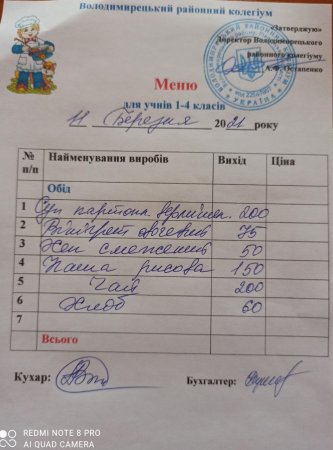 Володимирецький районний колегіум
«Затверджую»
Директор Володимирецького
районного колегіуму
А.Ф. Остапенко
УКРАЇНА
Меню
для учнів 1-4 класів
11 Березня 2021 року
№ п/п Найменування виробів Вихід Ціна
Обід
1 Суп картопл. 200
2 Вінігрет овочевий 75
3 Хек смажений 50
4 Каша рисова 150
5 Чай 200
6 Хліб 60
7
Всього
Кухар: Бухгалтер:
REDMI NOTE 8 PRO
AI QUAD CAMERA